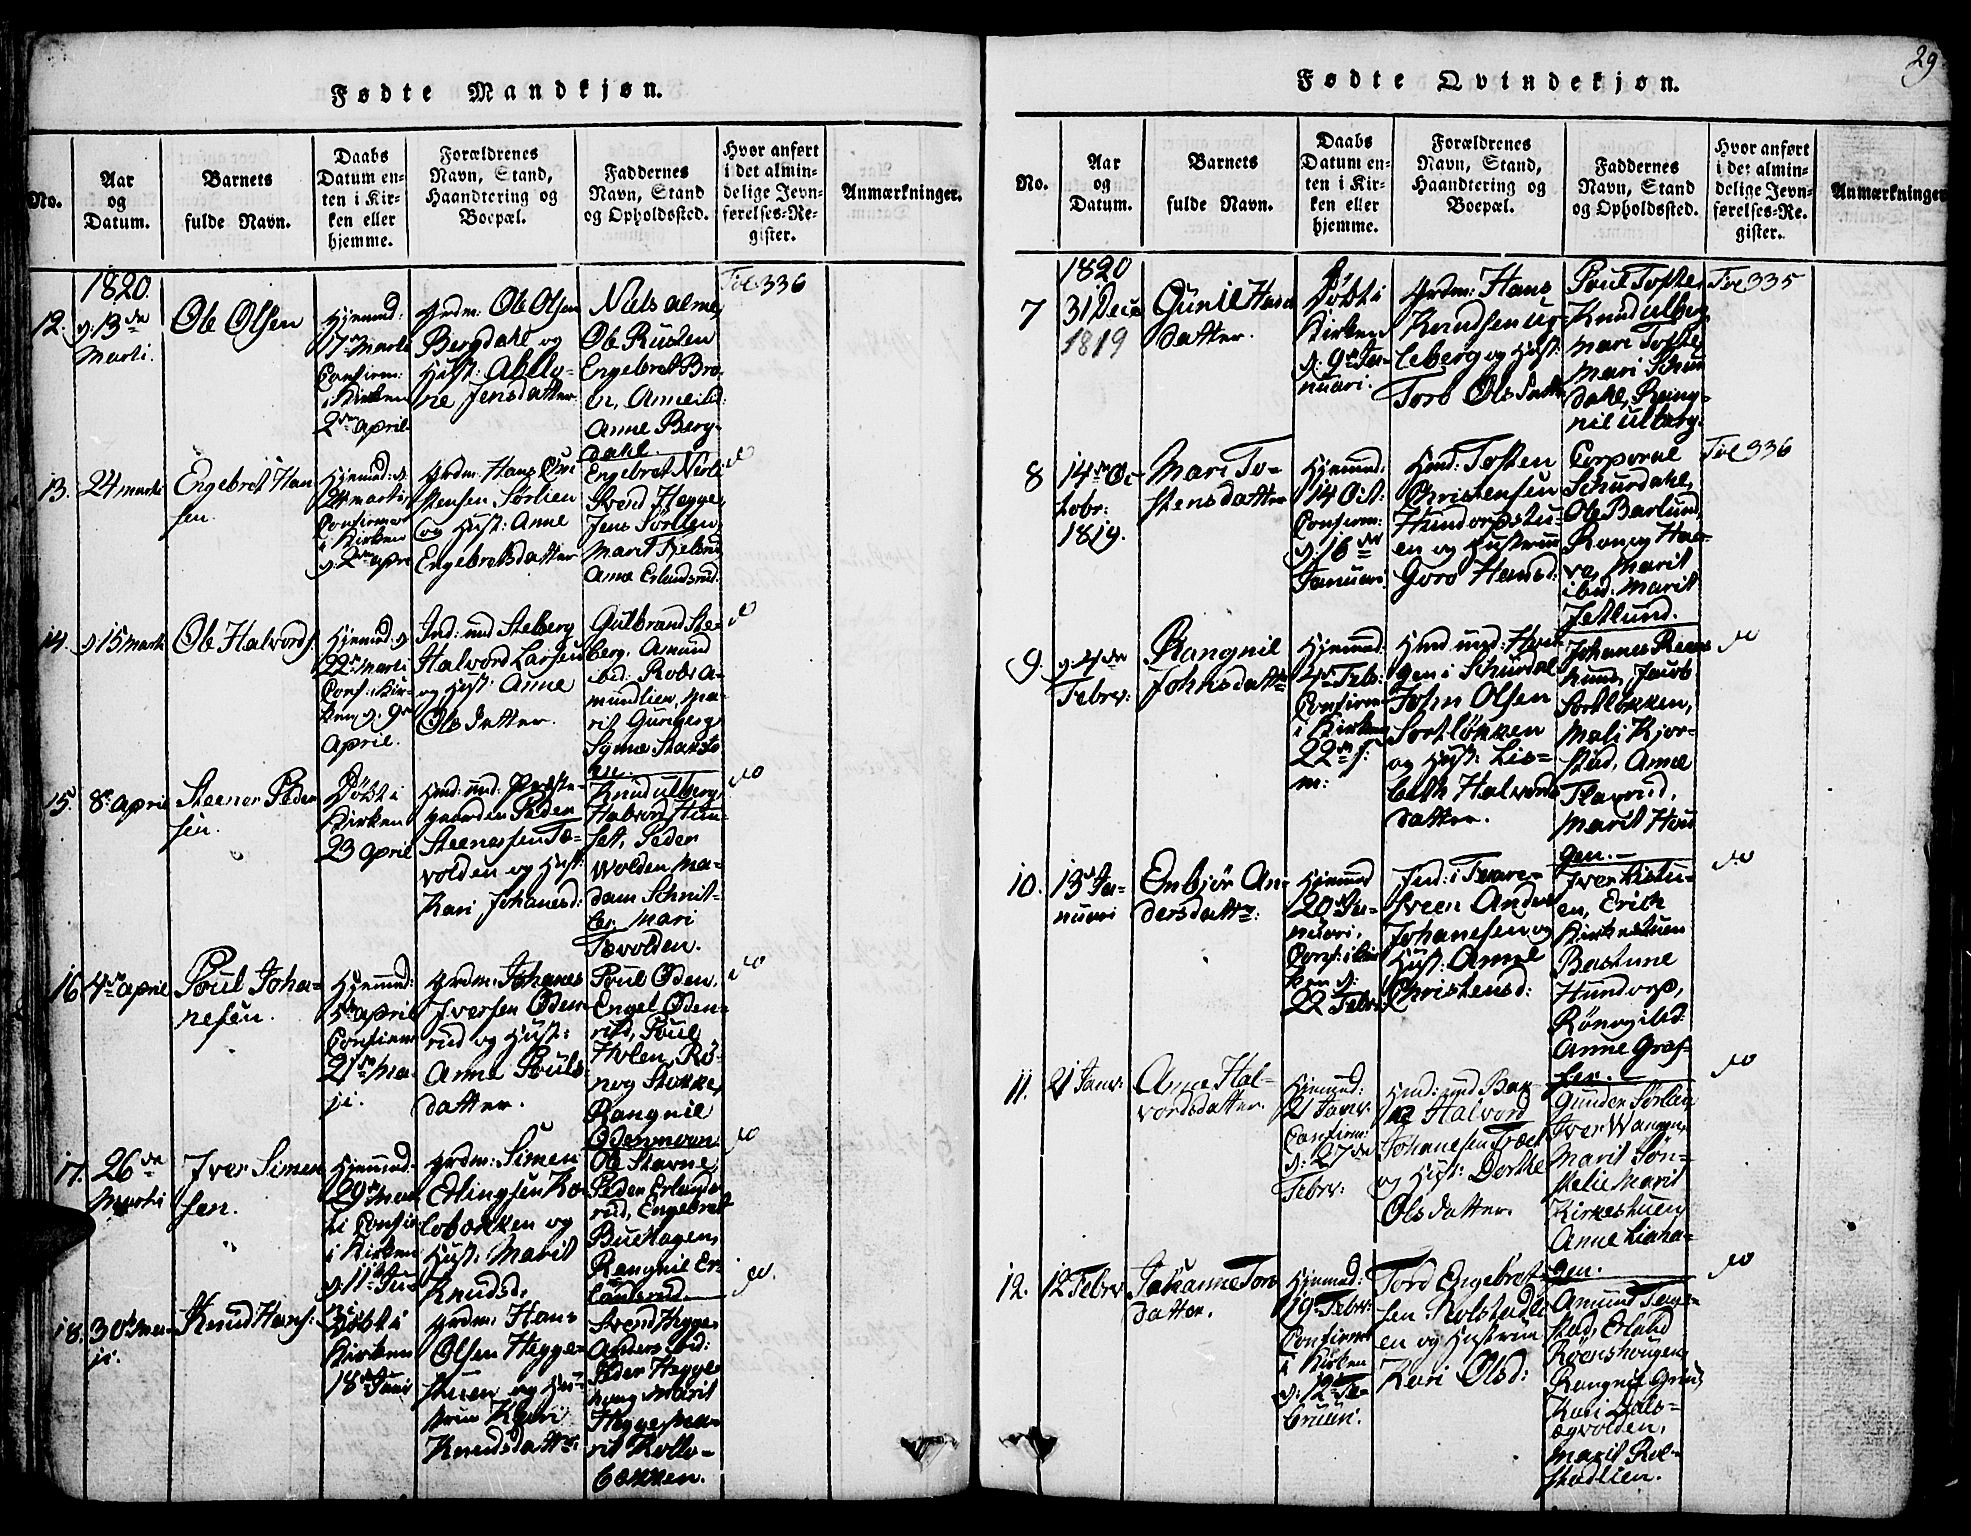 29
Fødte Mandkjøn.
No.
Aar
og
Datum.
Barnets
fulde Navn.
Daabs
Datum en-
ten i Kir-
ken eller
hjemme.
Forældrenes
Navn, Stand,
Haandtering og
Boepæl.
Faddernes
Navn, Stand
og Opholdssted.
Hvor anført
i det almin-
delige Jevn-
førelses-Re-
gister.
Anmærkninger.
1820.
12.
d: 13de
Marti.
Ole Olsen
Hjemed:
17 Marti
Confirm:
i Kirken
2den April
Grdm: Ole Olsen
Bergdahl og
Hust:
Jensdatter
Niels
Ole Rusten
Engebret Bro-
en, Anne ibd:
Anne Berg-
dahl.
Fol 336
13.
24 marti
Engebret Han
sen.
Hjemed: d
24 marti
Confirmer
i Kirken
d: 2den apri
Grdm: Hans Chri
stensen Sørlien
og Hust: Anne
Engebretsdatter
Engebret
Svend Hegge,
Jens Sørlien,
Marit
Anne Erlandsrud.
do
14.
d: 15 Marti
Ole Halvords:
Hjemed: d
22 Marti
Conf: i Kir-
ken, d: 9de
April.
Ind: ved Steberg
Halvord Larsen
og Hust: Anne
Olsdatter.
Gulbrand Ste-
berg, Amund
ibd:
mundlien, Ma-
rit
do
15.
8de April
Steener Peder
sen.
Døbt i
Kirken
23 April
Hmd: ved: Præste-
gaarden Peder
Steenersen Tæ-
volden og Hust:
Kari Johanesd:
Knud Ulberg,
Halvord Hun-
Peder
Wolden, Ma-
dam Schnit-
ler, Mari
Tævolden.
do
16
4de April
Poul Joha-
nesen.
Hjemed:
5de April
Confirm
21de Ma-
ji.
Grdm: Johanes
Iversen Øden-
rud og Hust:
Anne Pouls
datter.
Poul Øden,
Engel Øden-
rud, Poul
Holen, Rø-
nog Stokke,
Rangnil
Ødenmoen.
do
17.
26de
Marti
Iver Simen
sen.
Hjemed:
29de Mar
ti Confir
i Kirken
d: 11te Ju-
ni
Grdm: Simen
Erlingsen Ko-
lobækken og
Hust: Marit
Knudsd.
Ole Stavne,
Peder Erlands-
rud, Engebret
Buehagen,
Rangnil Er-
landsrud.
do
18.
30te Ma-
ji.
Knud Hans:
Døbt i
Kirken
18de Juni
Grdm: Hans
Olsen Hegge-
stuen og Hu-
strue Kari
Knudsdatter
Svend Hegge,
Anders ibd:
Peder Hegge
haug Marit
Hegge, Ma-
rit Kollo-
bækken.
do.
Fødte Qvindekjøn.
No.
Aar
og
Datum.
Barnets
fulde Navn.
Daabs
Datum en-
ten i Kir-
ken eller
hjemme.
Forældrenes
Navn, Stand,
Haandtering og
Boepæl.
Faddernes
Navn, Stand
og Opholdssted.
Hvor anført
i det almin-
delige Jevn-
førelses-Re-
gister.
Anmærkninger
1820
7
31 Dece
1819
Gunil Hans
datter.
Døbt i
Kirken
d: 9de Ja-
nuari.
Grdm: Hans
Knudsen Ul-
leberg og Hust:
Torb Olsdatt
Poul Tofte,
Knud Ulberg,
Mari Tofte,
Mari Schur
dahl, Rang-
nil Ulberg.
Fol 335
8
14de Oc-
tobr:
1819.
Mari To-
stensdatter
Hjemed:
14 Oct:
Confirm:
d: 16de
Januari
Hmd: Tosten
Christensen
Hundorpstu-
en og Hustrue
Goro Hansd:
Corporal
Schurdahl,
Ole Barlund,
Marit
ibd: Marit
Jetlund.
Fol 336
9.
d: 4de
Febrv:
Rangnil
Johnsdatter
Hjemed:
4de Feb:
Confirm
i Kirken
22de f:
m:
Hmd ved: Hou-
gen i Schurdal
John Olsen
Sortløkken
og Hust: Lis-
beth Halvords
datter.
Johanes
Jacob
Sortløkken,
Mali Kjor-
stad, Anne
Flavrud,
Marit Hou
gen.
do
10.
13de Ja-
nuari
Enbjør An-
dersdatter:
Hjemed
20de Ja-
nuari,
Conf: i Kir
ken d:
22 Febr:
Ind: i
Anders
Johanesen og
Hust: Anne
Christensd:
Iver Kistu-
en, Erich
Kirkestuen
Hundorp,
Rønog ibd:
Anne Graf-
fer.
do
11.
21 Janv:
Anne Hal-
vordsdatter.
Hjemed:
21 Janv:
Confirm:
d: 27de
Febrv:
Hmd: ved Bak
Halvord
Johanesen
og Hust: Dorthe
Olsdatter.
Gunder Sørlien
Iver Wangen,
Marit
Marit
Kirkestuen,
Anne
gen.
do
12.
12 Febrv
Johanne Tors
datter.
Hjemed:
19de Febrv:
Confirm
i Kirken
d: 12te Fe-
bruari.
Tord Engebret-
sen Rolstadli-
en og Hustrue
Kari Olsd:
Amund
stad, Erland
Kari
Marit Rol-
stadlien.
do